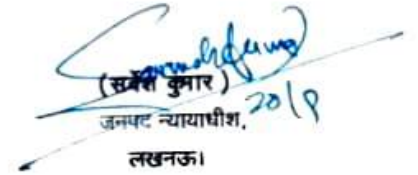 (सर्वेश कुमार)
जनपद न्यायाधीश,
लखनऊ।